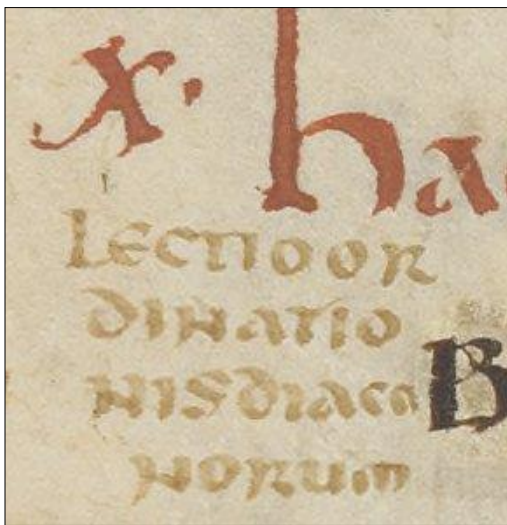 x. ha
Lectio or
dinatio
nis diaco
B
norum